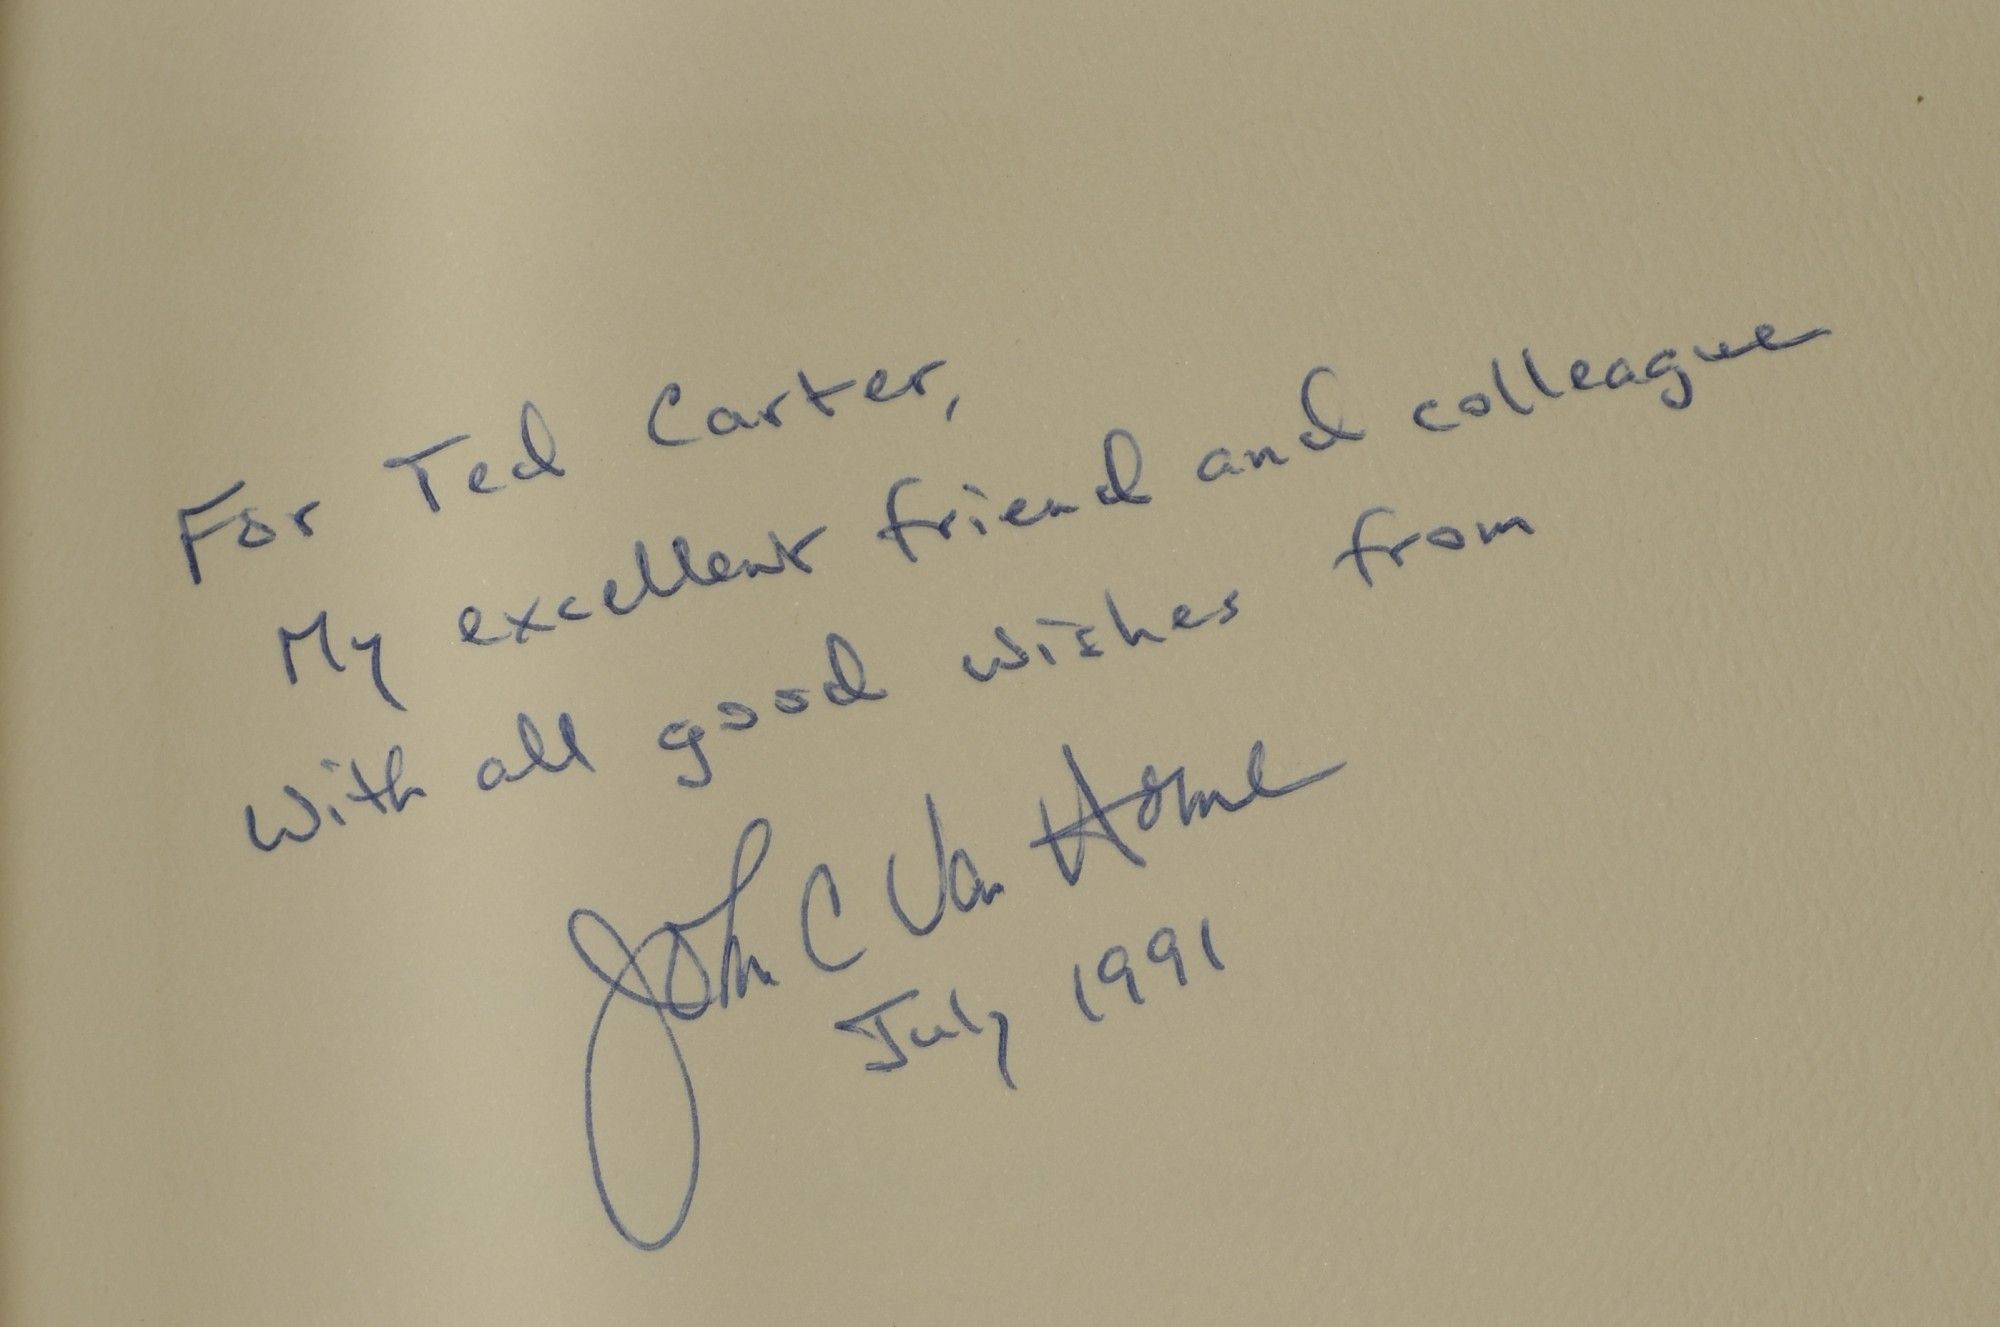 For Ted Carter,
My excellent friend and colleague
with all good wishes from
John C Van Horne
July 1991